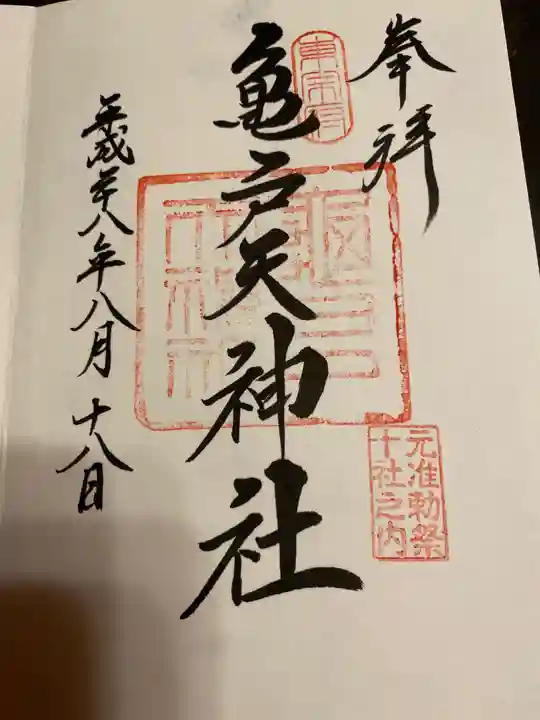 奉拝
亀戸天神社
平成二十八年八月十八日
東宰府
元准勅祭
十社之内